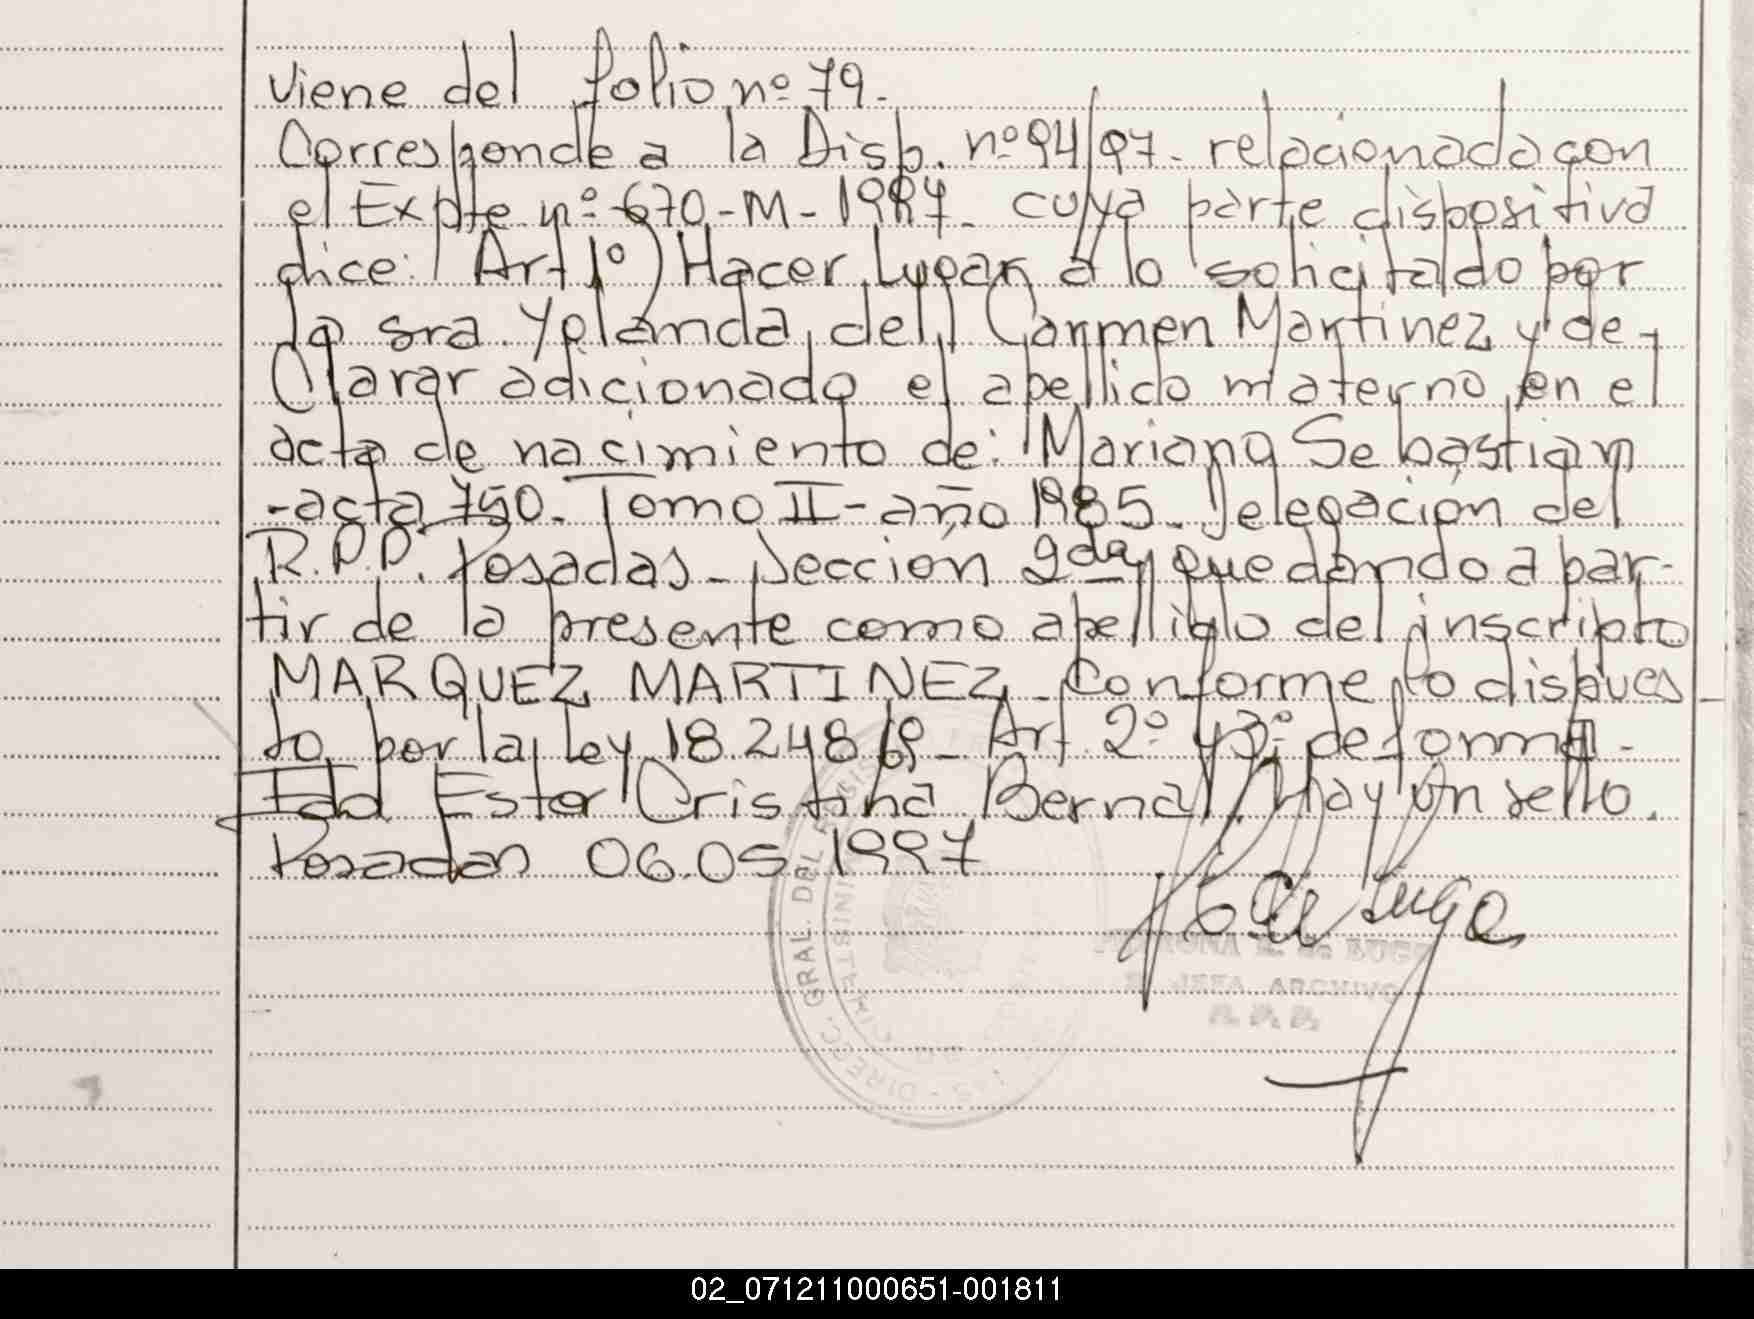 Viene del folio nº 79.
Corresponde a la Disp. nº 94/97. relacionada con
el Expte nº 670-M-1997. cuya parte dispositiva
dice: Art 1º) Hacer Lugar a lo solicitado por
la sra. Yolanda del Carmen Martinez y de-
Clarar adicionado el apellido materno en el
acta de nacimiento de: Mariano Sebastian
-acta 750. Tomo II-año 1985. Delegación del
R.P.P. Posadas. Sección 2da, quedando a par-
tir de la presente como apellido del inscripto
MARQUEZ MARTINEZ. Conforme lo dispues-
to por la Ley 18.248/69. Art. 2º y 3º: de forma.
Fdo Ester Cristina Bernal. Hay un sello.
Posadas 06.05.1997
de Lugo
E. de LUGO
JEFA ARCHIVO
R. P. P.
DIRECC. GRAL. DEL REGIS
MINIST
02_071211000651-001811